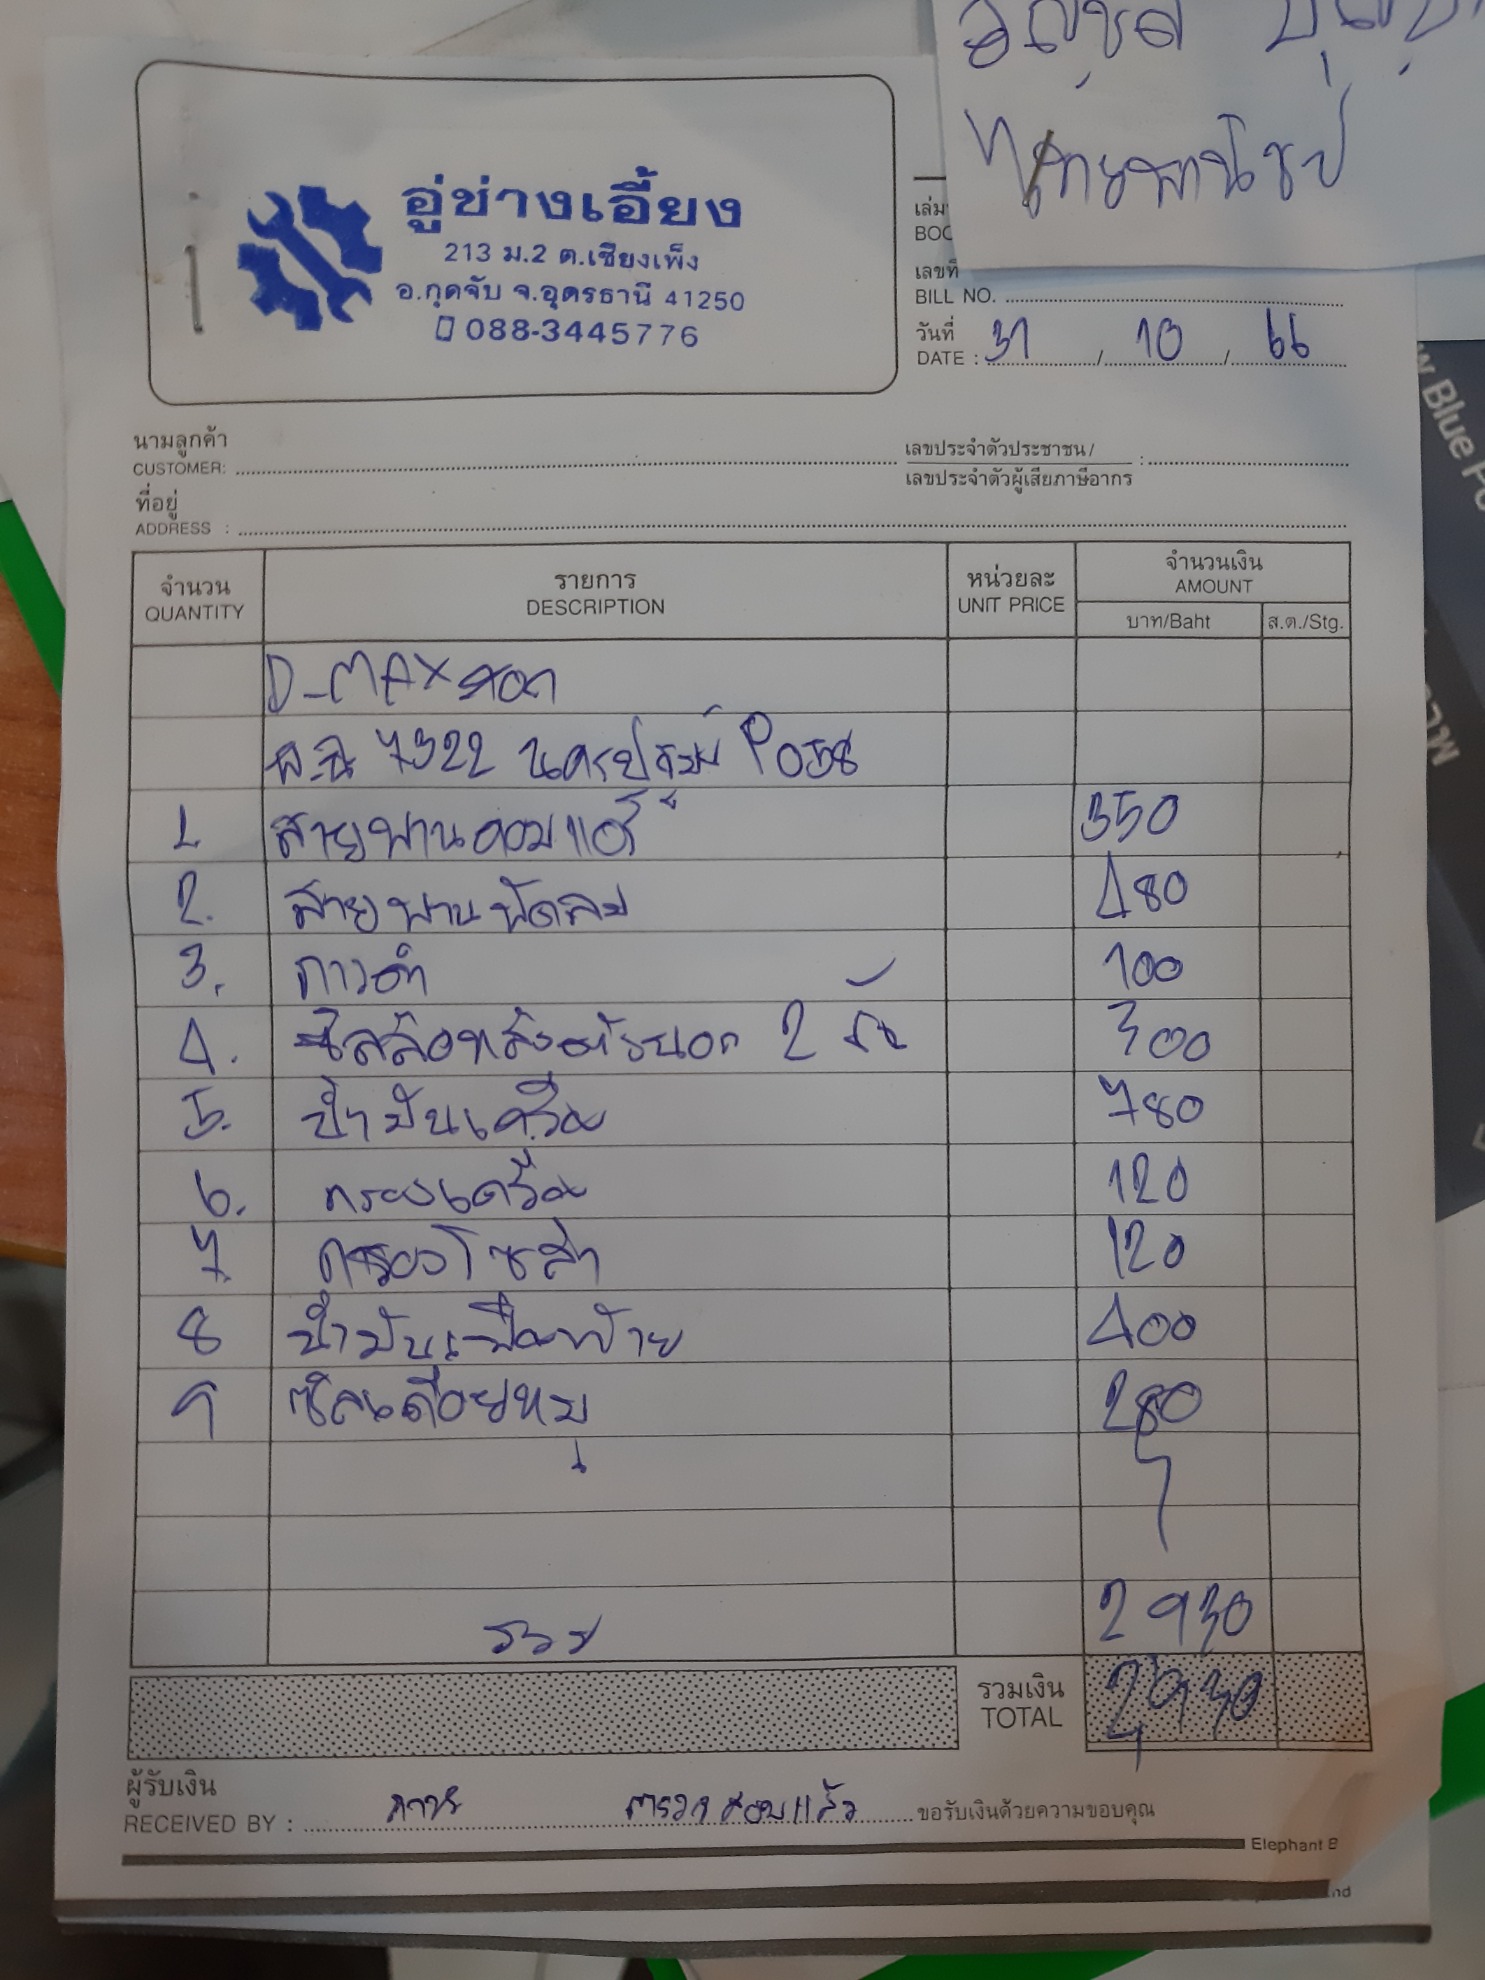 อู่ช่างเอี้ยง
213 ม.2 ต.เชียงเพ็ง
อ.กุดจับ จ.อุดรธานี 41250
088-3445776
เลขที่
BILL NO.
วันที่
DATE : 31 / 10 / 66
นามลูกค้า
CUSTOMER:
เลขประจำตัวประชาชน/
เลขประจำตัวผู้เสียภาษีอากร :
ที่อยู่
ADDRESS :
จำนวน รายการ หน่วยละ จำนวนเงิน
QUANTITY DESCRIPTION UNIT PRICE AMOUNT
บาท/Baht ส.ต./Stg.
D-MAX
7322 นครปฐม P058
1 สายพานคอมแอร์ 350
2. สายพานพัดลม 480
3. กาวดำ 100
4. ซีลล้อหลังตัวนอก 2 ตัว 300
5. น้ำมันเครื่อง 780
6. กรองเครื่อง 120
7. กรองโซล่า 120
8 น้ำมันเฟืองท้าย 400
9 ซีลเดือยหมู 280
รวม 2930
รวมเงิน
TOTAL 2,930
ผู้รับเงิน
RECEIVED BY : ตรวจสอบแล้ว ขอรับเงินด้วยความขอบคุณ
Elephant B